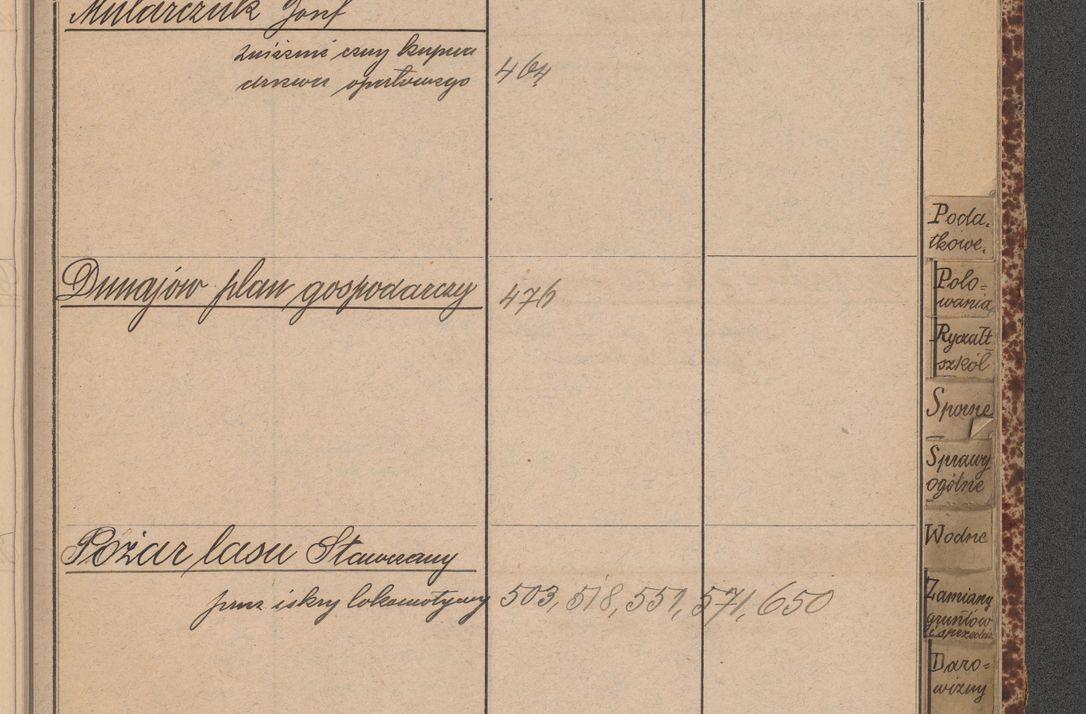 Mularczuk Josf
zniżenie ceny kupna 464
drzewa opałowego
Dunajów plan gospodarczy 476
Pożar lasu Stawczany
przez iskry lokomotywy 503, 518, 551, 571, 650
Poda-
tkowe.
Polo=
wania
Ryczałt
szkół
Sporne
Sprawy
ogólne
Wodne
Zamiany
gruntów
i sprzedaż
Daro=
wizny